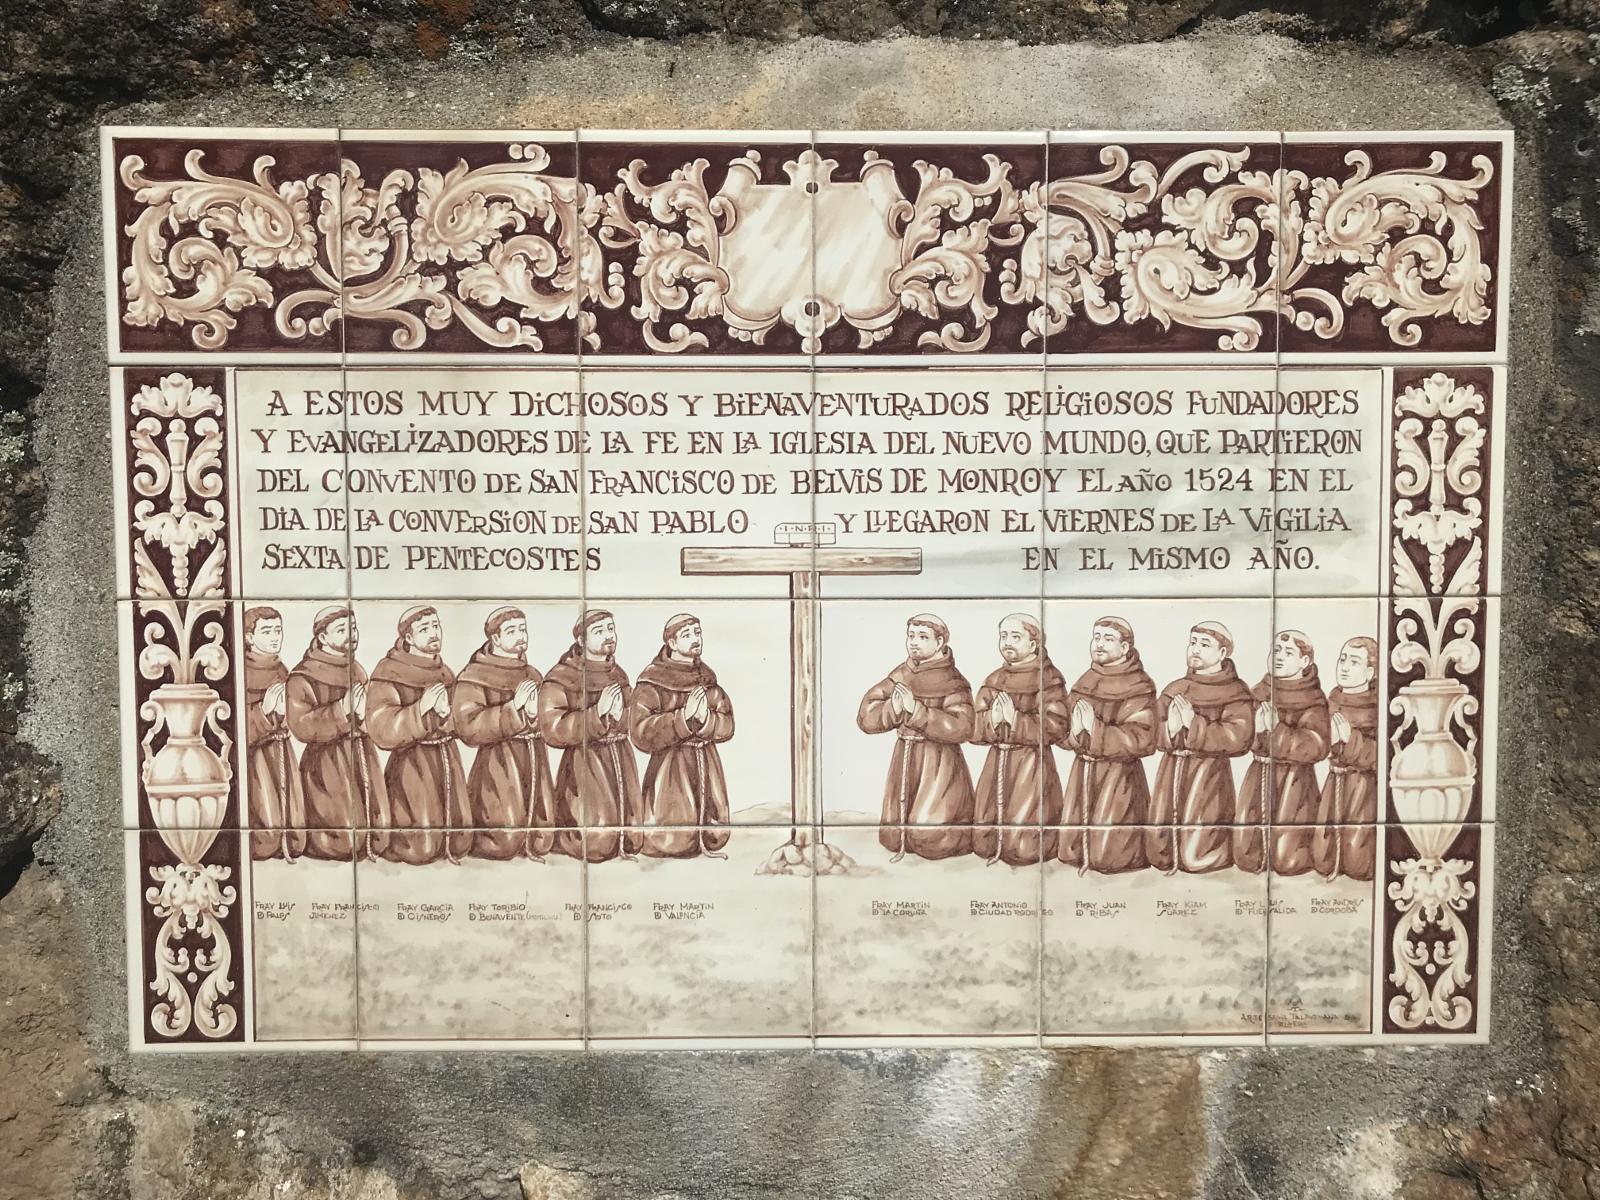 A ESTOS MUY DICHOSOS Y BIENAVENTURADOS RELIGIOSOS FUNDADORES
Y EVANGELIZADORES DE LA FE EN LA IGLESIA DEL NUEVO MUNDO, QUE PARTIERON
DEL CONVENTO DE SAN FRANCISCO DE BELVIS DE MONROY EL AÑO 1524 EN EL
DIA DE LA CONVERSION DE SAN PABLO Y LLEGARON EL VIERNES DE LA VIGILIA
SEXTA DE PENTECOSTES EN EL MISMO AÑO.
·I·N·R·I·
FRAY LUIS
FRAY FRANCISCO
JIMENEZ
FRAY GARCIA
D CISNEROS
FRAY TORIBIO
D BENAVENTE
FRAY FRANCISCO
D SOTO
FRAY MARTIN
D VALENCIA
FRAY MARTIN
D LA CORUÑA
FRAY ANTONIO
D CIUDAD RODRIGO
FRAY JUAN
D RIBAS
FRAY
SUAREZ
FRAY LUIS
D FUENSALIDA
FRAY ANDRES
D CORDOBA
ARTESANIA TALAVERANA